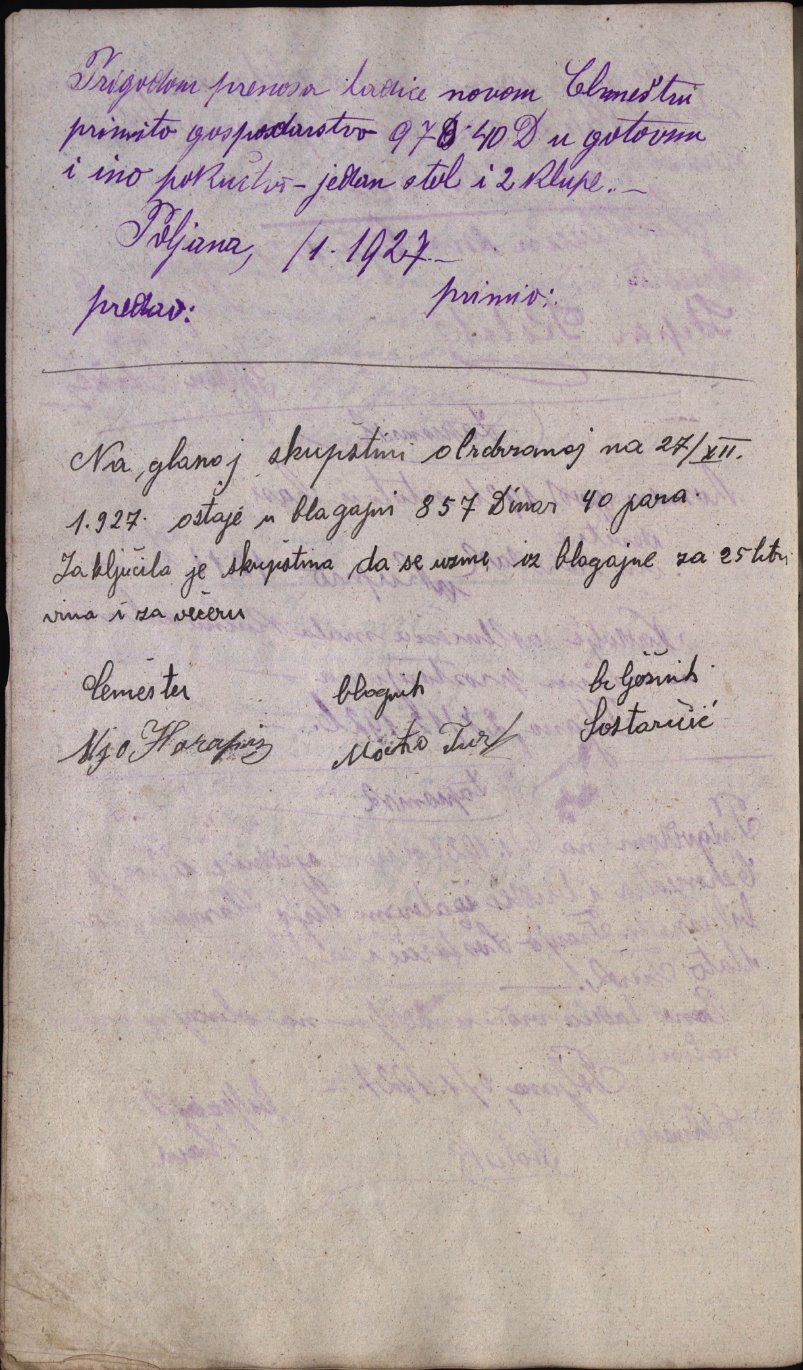 Prigodom prenosa ladice novom Chmeštru
primito gospodarstvo 978·40 D u gotovom
i ino pokućstvo - jedan stol i 2 klupe. -
Poljana, /1. 1927. -
predao: primio:
Na glanoj skupštini obrdrzanoj na 27/XII.
1.927. ostaje u blagajni 857 Dinar 40 para.
Zaključila je skupština da se uzme iz blagajne za 25 litri
vina i za večeru
Cemešter blagnik bilježnik
Mijo Harapin Moćko Sostarčić